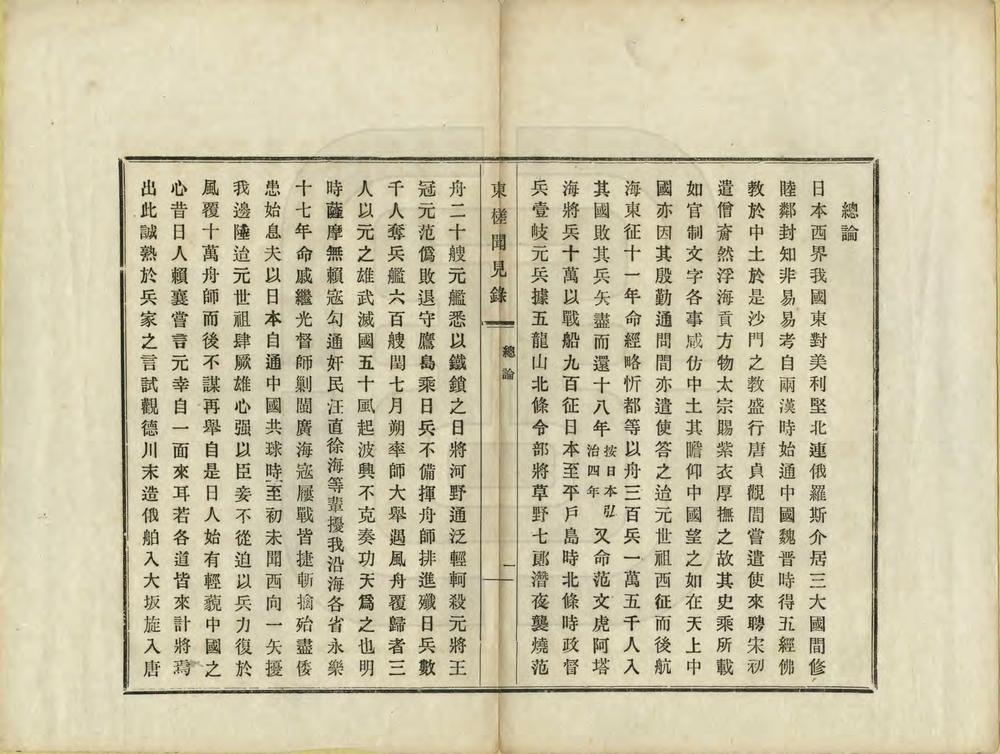 總論
日本西界我國東對美利堅北連俄羅斯介居三大國間修
睦鄰封知非易易考自兩漢時始通中國魏晉時得五經佛
教於中土於是沙門之教盛行唐貞觀間嘗遣使來聘宋初
遣僧奝然浮海貢方物太宗賜紫衣厚撫之故其史乘所載
如官制文字各事咸仿中土其瞻仰中國望之如在天上中
國亦因其殷勤通問間亦遣使答之迨元世祖西征而後航
海東征十一年命經略忻都等以舟三百兵一萬五千人入
其國敗其兵矢盡而還十八年按日本弘治四年又命范文虎阿塔
海將兵十萬以戰船九百征日本至平戶島時北條時政督
兵壹岐元兵據五龍山北條令部將草野七郎潛夜襲燒范
東槎聞見錄
總論
一
舟二十艘元艦悉以鐵鎖之日將河野通泛輕舸殺元將王
冠元范僞敗退守鷹島乘日兵不備揮舟師排進殲日兵數
千人奪兵艦六百艘閏七月朔率師大舉遇風舟覆歸者三
人以元之雄武滅國五十風起波興不克奏功天爲之也明
時薩摩無賴寇勾通奸民汪直徐海等輩擾我沿海各省永樂
十七年命戚繼光督師剿閩廣海寇屢戰皆捷斬擒殆盡倭
患始息夫以日本自通中國共球時至初未聞西向一矢擾
我邊陲迨元世祖肆厥雄心强以臣妾不從迫以兵力復於
風覆十萬舟師而後不謀再舉自是日人始有輕藐中國之
心昔日人賴襄嘗言元幸自一面來耳若各道皆來計將焉
出此誠熟於兵家之言試觀德川末造俄舶入大坂旋入唐